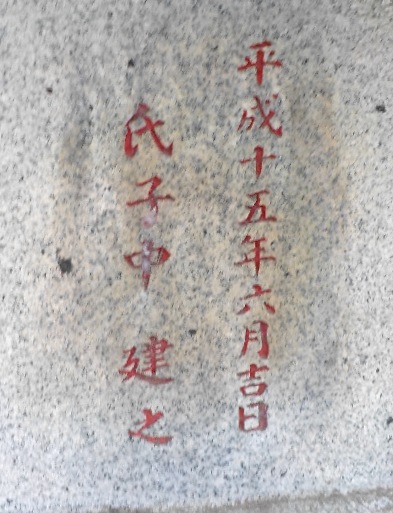 平成十五年六月吉日
氏子中 建之